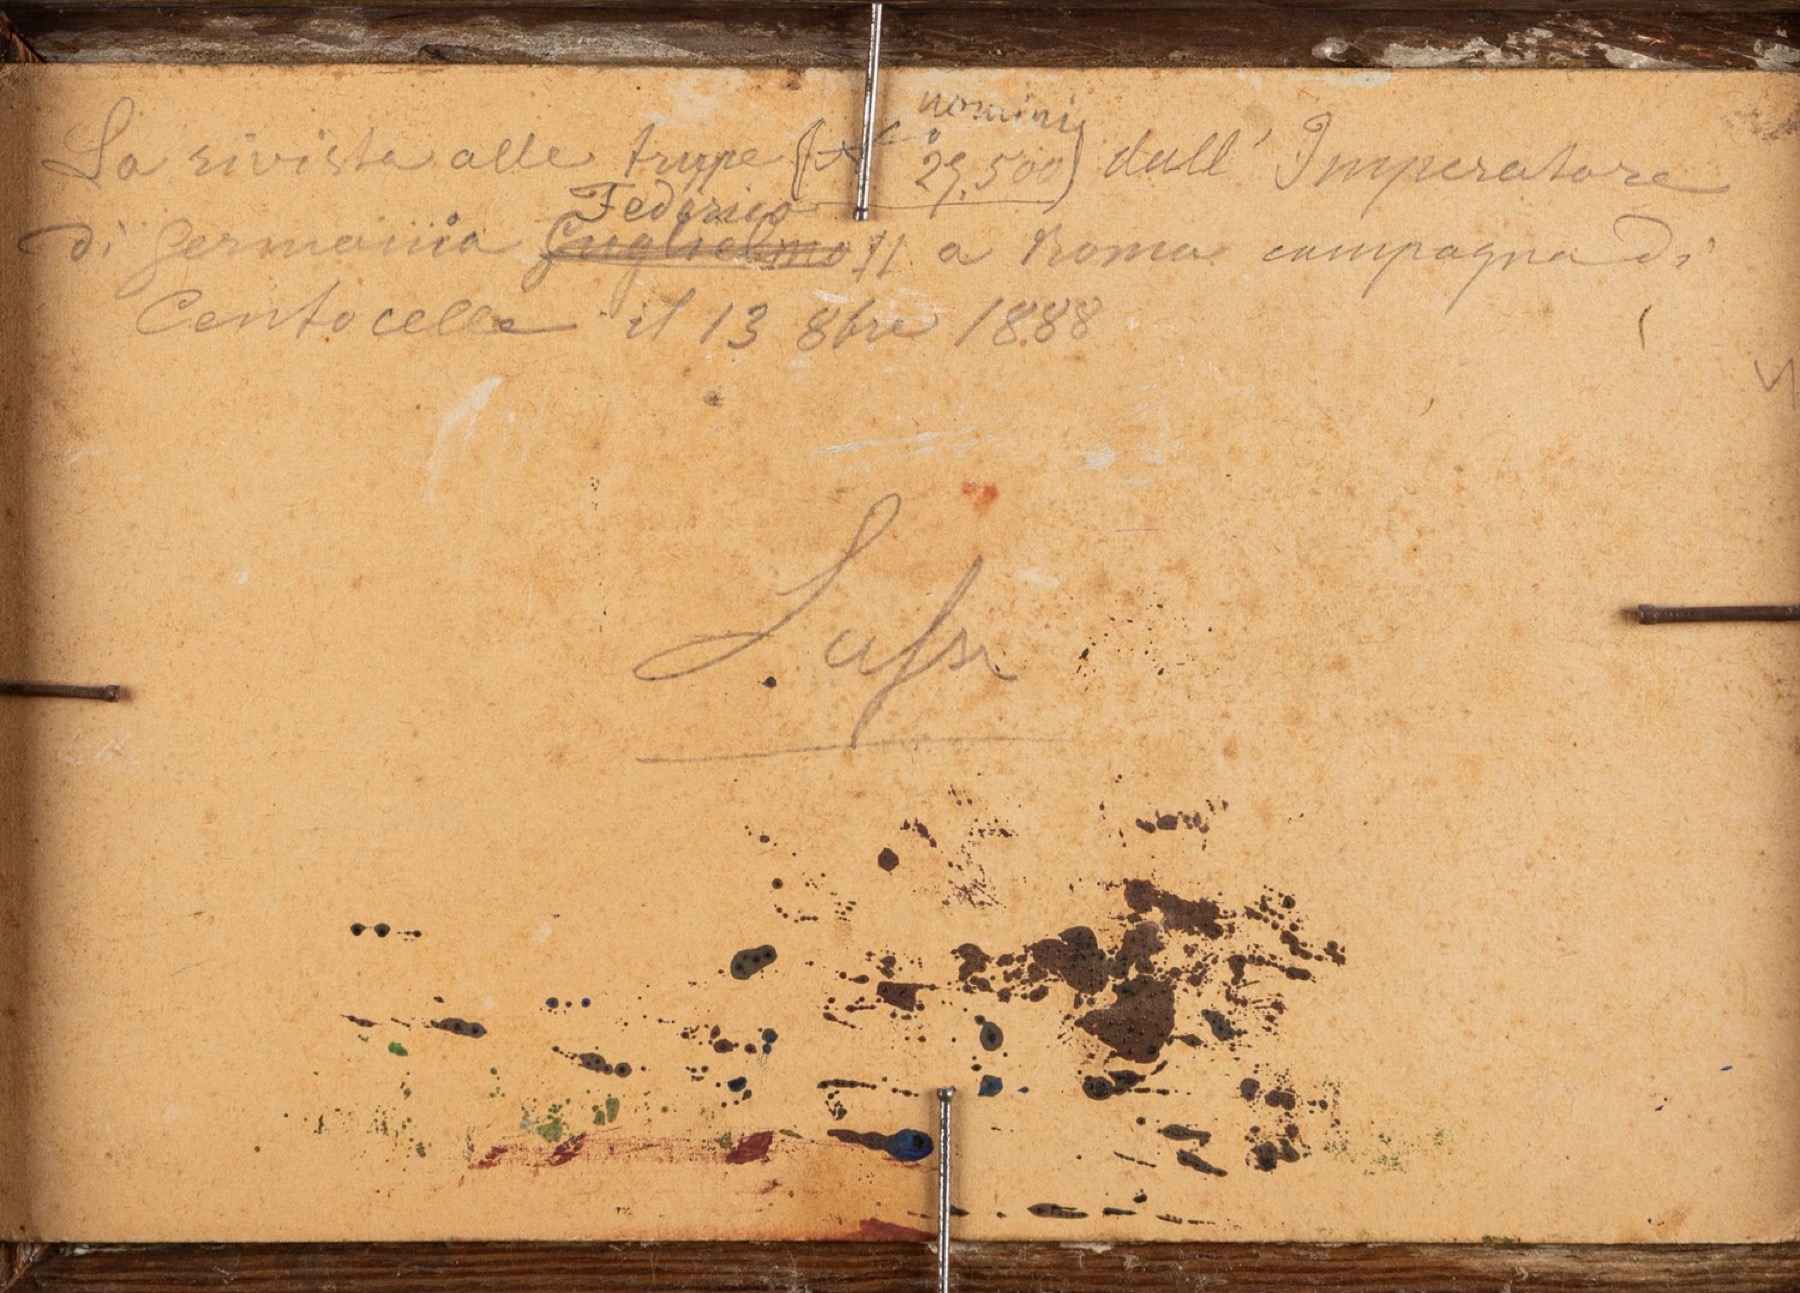 uomini
La rivista alle truppe ( 29,500) dall' Imperatore
Federico
di Germania Guglielmo II a Roma campagna di
Centocelle il 13 8bre 1888